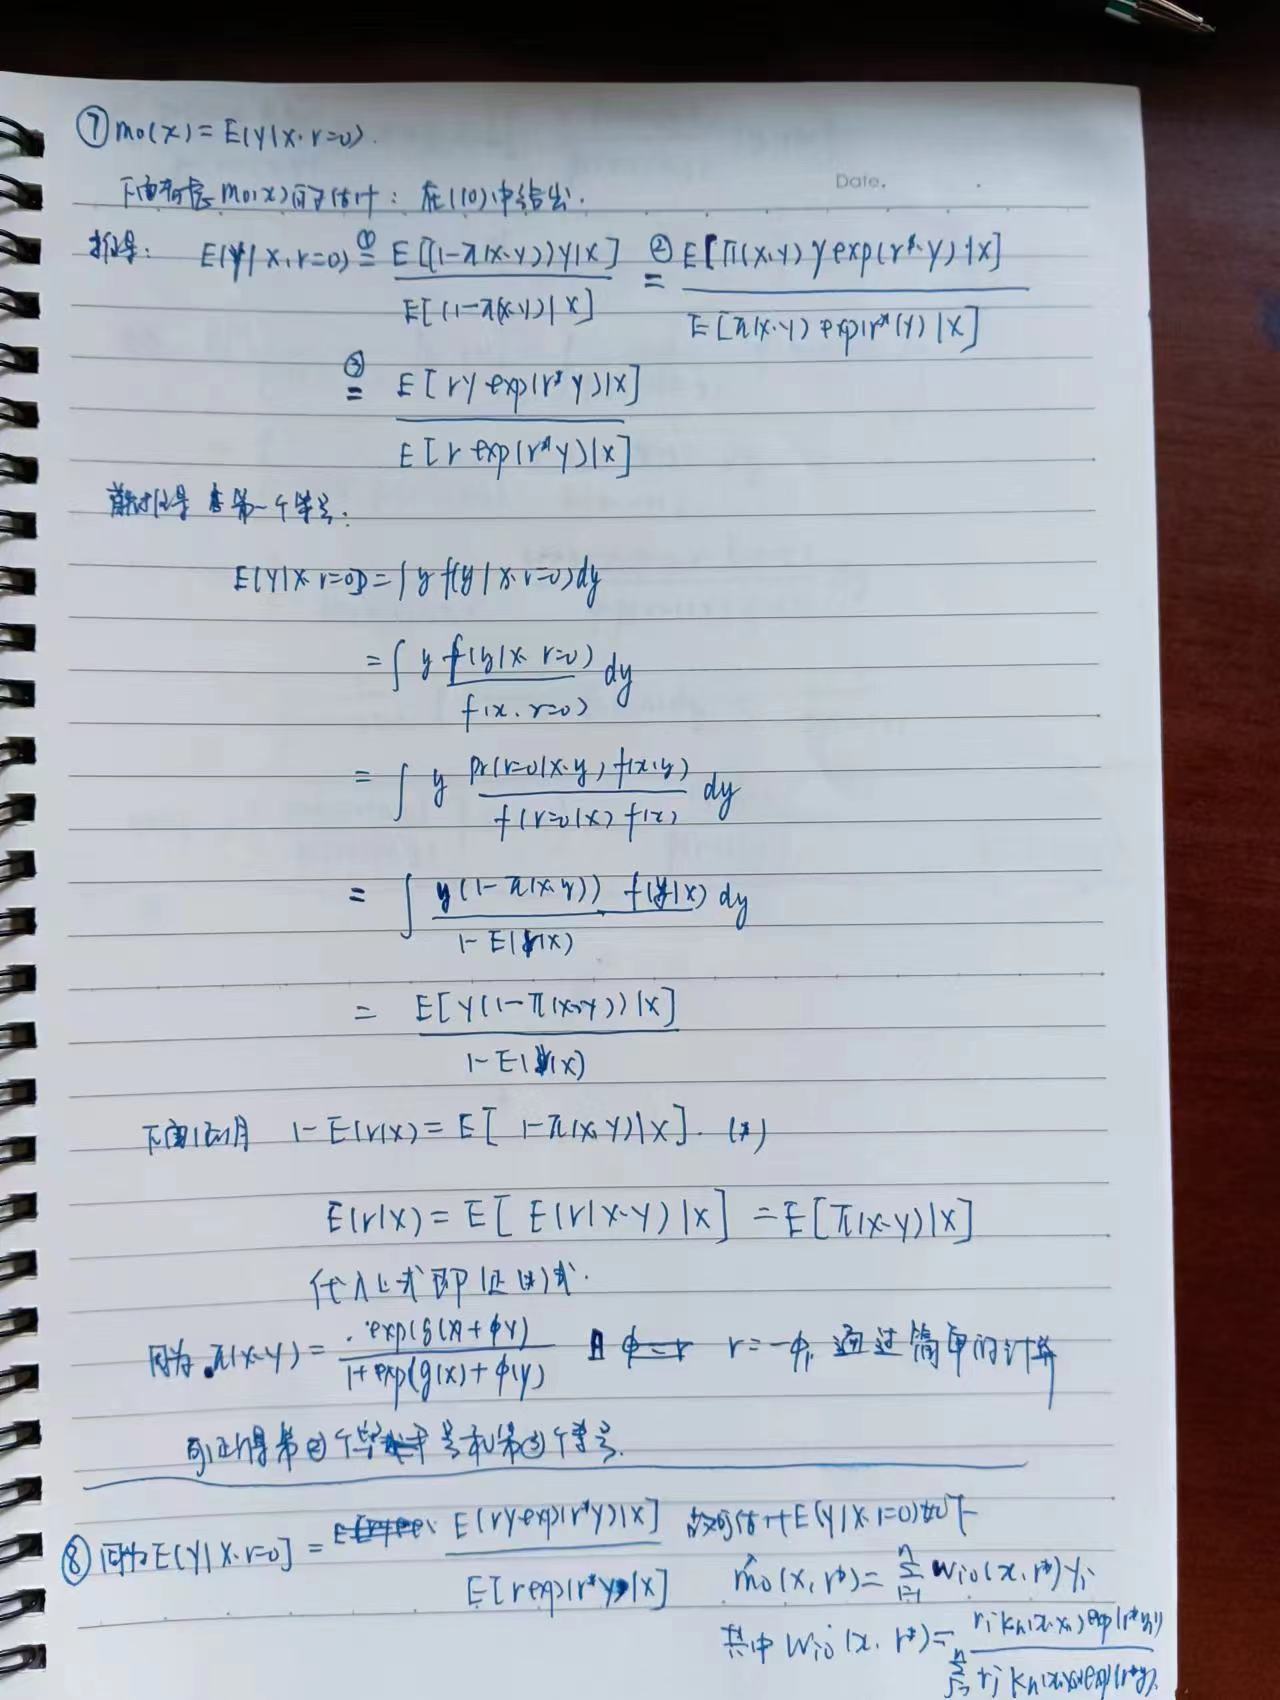 ⑦ m₀(x) = E(Y|X, r=0).
Date.
下面考虑 m₀(x) 的估计: 在(10)中给出.
推导: E(Y|X, r=0) ①= E[(1-π(X,Y))Y|X] / E[(1-π(X,Y))|X] ②= E[π(X,Y) Y exp(r*Y)|X] / E[π(X,Y) exp(r*(Y)|X]
③= E[rY exp(r*Y)|X] / E[r exp(r*Y)|X]
首先推导 第一个等号:
E(Y|X, r=0) = ∫ y f(y|x, r=0) dy
= ∫ y f(y|x, r=0) / f(x, r=0) dy
= ∫ y Pr(r=0|x,y) f(x,y) / f(r=0|x) f(x) dy
= ∫ y(1-π(x,y)) f(y|x) / 1-E(r|x) dy
= E[Y(1-π(X,Y))|X] / 1-E(r|X)
下面证明 1-E(r|X) = E[1-π(X,Y)|X]. (*)
E(r|X) = E[E(r|X,Y)|X] = E[π(X,Y)|X]
代入上式即证(*)式.
因为 π(X,Y) = exp(g(X)+φY) / 1+exp(g(X)+φ(Y) 且 r=-φ, 通过简单的计算
可证得第②个等号和第③个等号.
⑧ 因为 E(Y|X, r=0] = E(rY exp(r*Y)|X] / E[r exp(r*Y)|X] 故可估计 E(Y|X, r=0) 如下
m̂₀(x, r*) = Σᵢ₌₁ⁿ wᵢ₀(x, r*) yᵢ
其中 wᵢ₀(x, r*) = rᵢ Kₕ(x, xᵢ) exp(r*yᵢ) / Σⱼ₌₁ⁿ rⱼ Kₕ(x, xⱼ) exp(r*yⱼ).